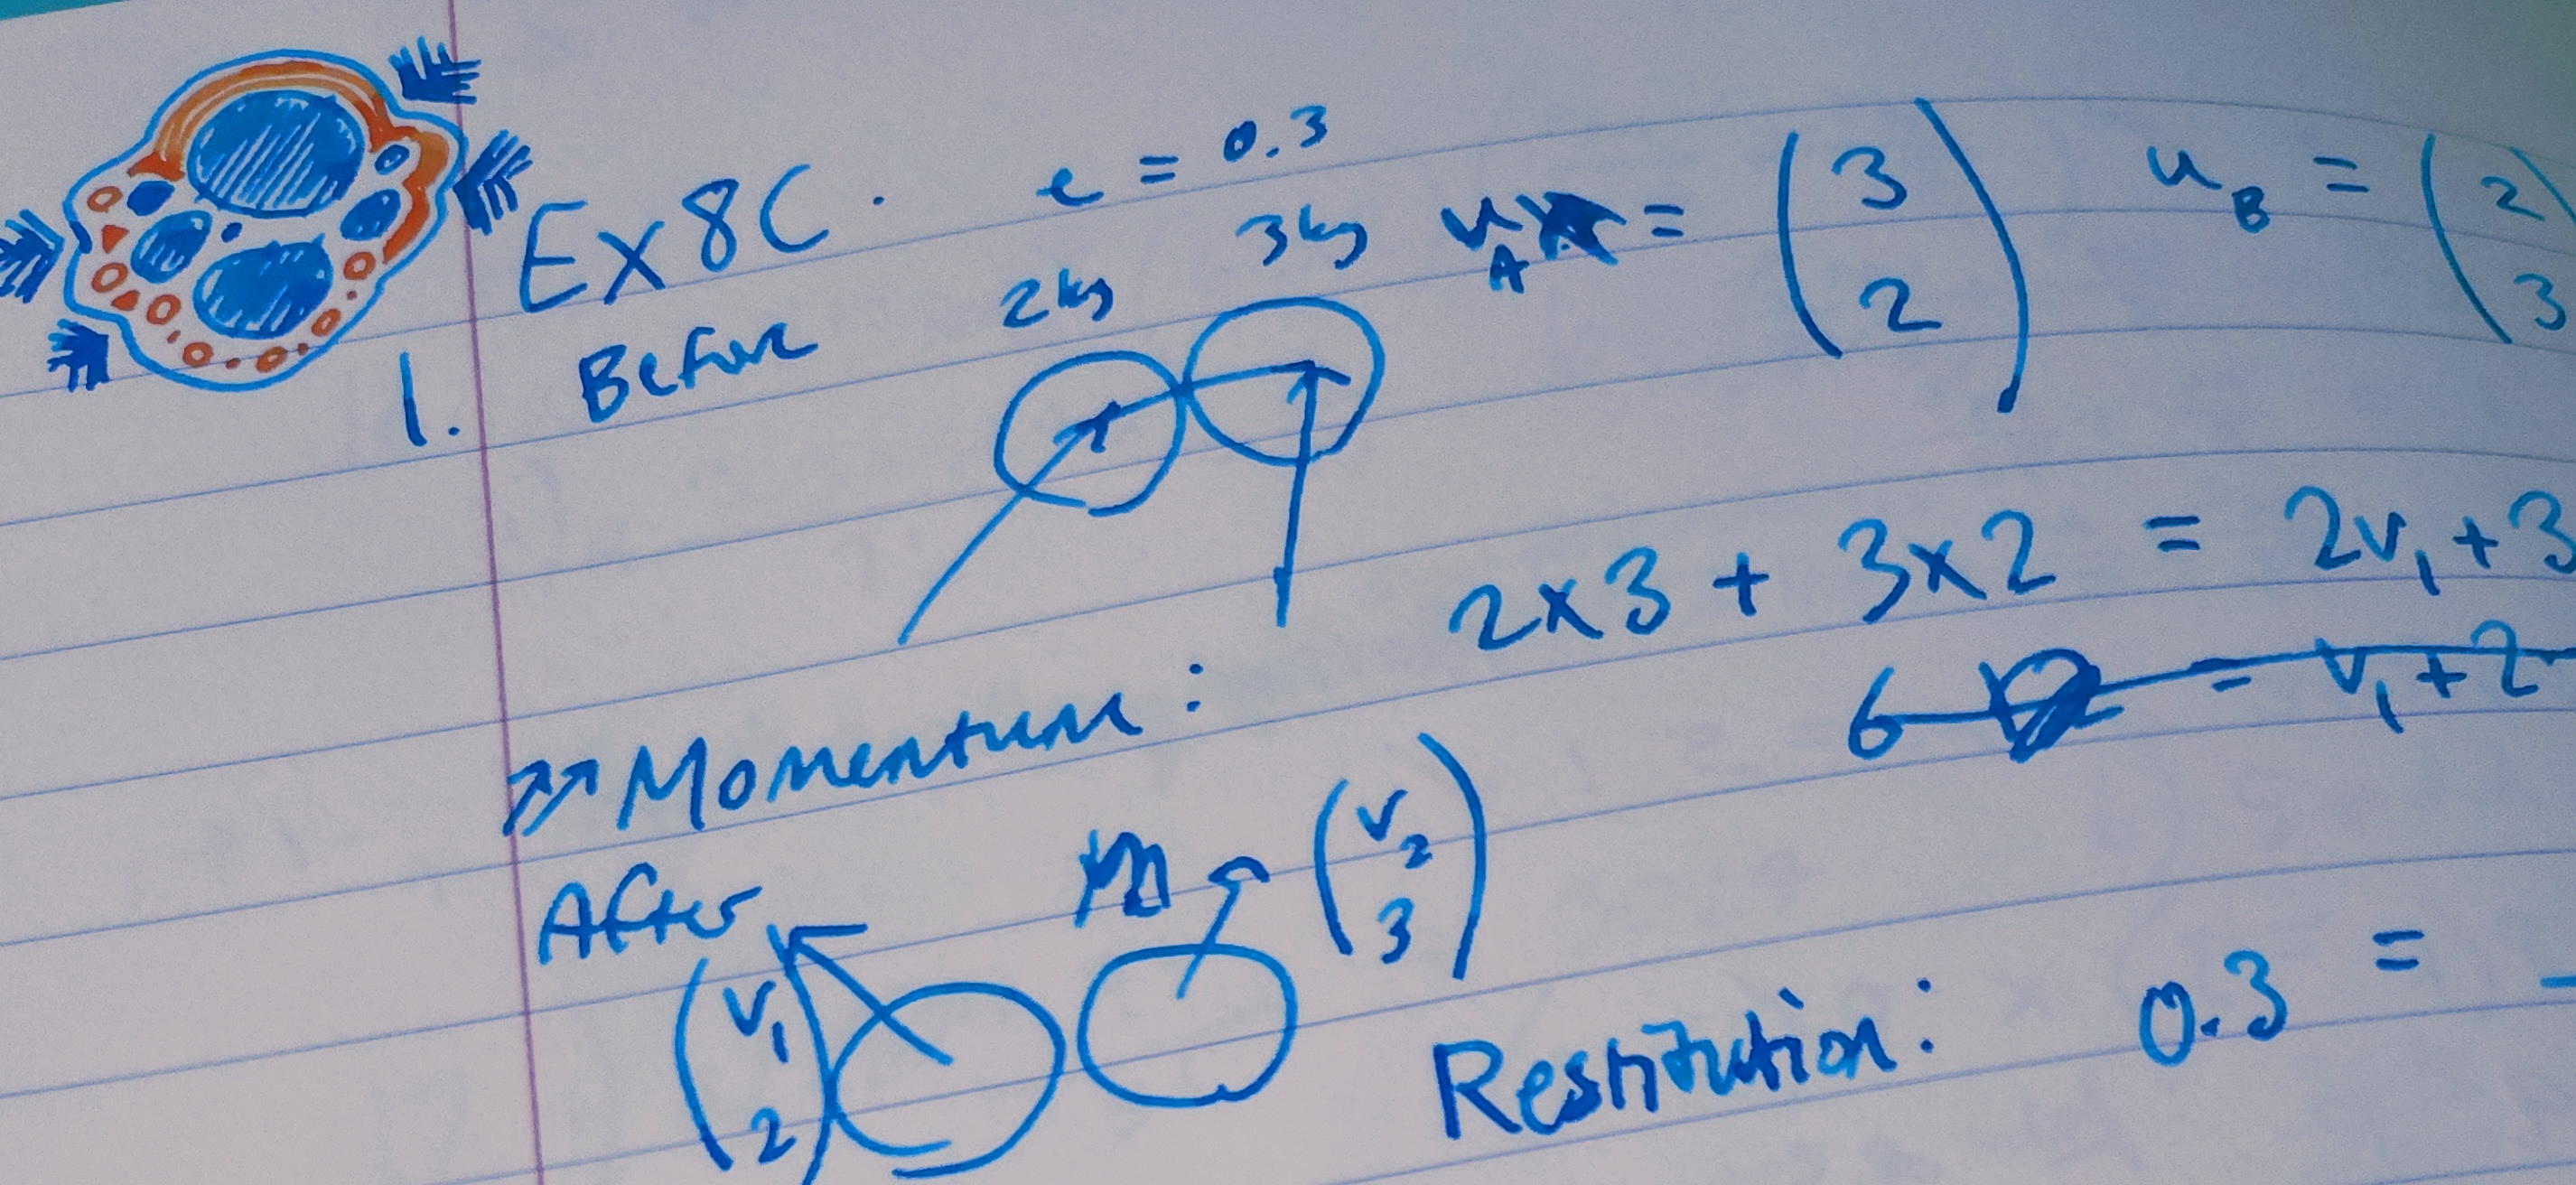 Ex 8C. e = 0.3
1. Before 2kg 3kg u_A = (3 2) u_B = (2 3
Momentum: 2x3 + 3x2 = 2v₁ + 3
6 = v₁ + 2
After (v₁ 2) (v₂ 3)
Restitution: 0.3 =